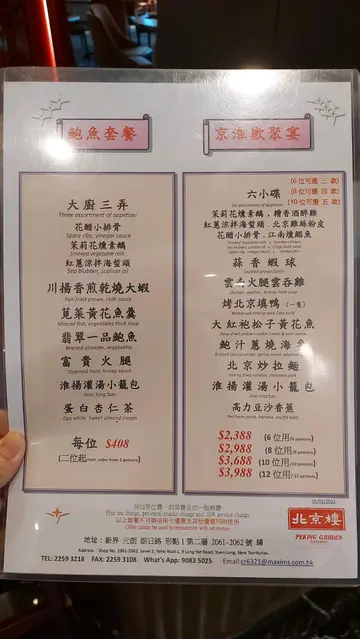 鮑魚套餐
大廚三弄
Three assortment of appetizer
花醋小排骨
Spare ribs, vinegar sauce
茉莉花燻素鵝
Smoked vegetable rolls
紅蔥涼拌海蜇頭
Sea blubber, scallion oil
川揚香煎乾燒大蝦
Pan-fried prawn, chilli sauce
莧菜黃花魚羹
Minced fish, vegetables thick soup
翡翠一品鮑魚
Braised abalone, vegetables
富貴火腿
Steamed ham, honey sauce
淮揚灌湯小籠包
Xiao long bao
蛋白杏仁茶
Egg white, Sweet almond cream
每位 $408
(二位起/min. order from 2 persons)
京淮歡聚宴
(6位可選三款)
(8位可選四款)
(10位可選五款)
六小碟
茉莉花燻素鵝，糟香酒醉雞
紅蔥涼拌海蜇頭，北京雞絲粉皮
花醋小排骨，江南燻鯧魚
蒜香蝦球
雲吞火腿雞
烤北京填鴨 (一隻)
大紅袍松子黃花魚
鮑汁蔥燒海參
北京炒拉麵
淮揚灌湯小籠包
Xiao long bao
高力豆沙香蕉
$2,388 (6 位用/6 persons)
$2,988 (8 位用/8 persons)
$3,688 (10 位用/10 persons)
$3,988 (12 位用/12 persons)
01/03/2022
另加茶位費，前菜費及加一服務費
Plus tea charge, pre-meal snacks charge and 10% service charge
以上套餐不可與信用卡優惠及其他優惠同時使用
Offer cannot be used in conjunction with any other
北京樓
PEKING GARDEN
地址：新界 元朗 朗日路 形點 I 第二層 2061-2062 號 舖
Address : Shop No. 2061-2062, Level 2, Yoho Mall I, 9 Long Yat Road, Yuen Long, New Territories
TEL: 2259 3218 FAX: 2259 3108 What's App: 9083 5025 Email:cr6321@maxims.com.hk